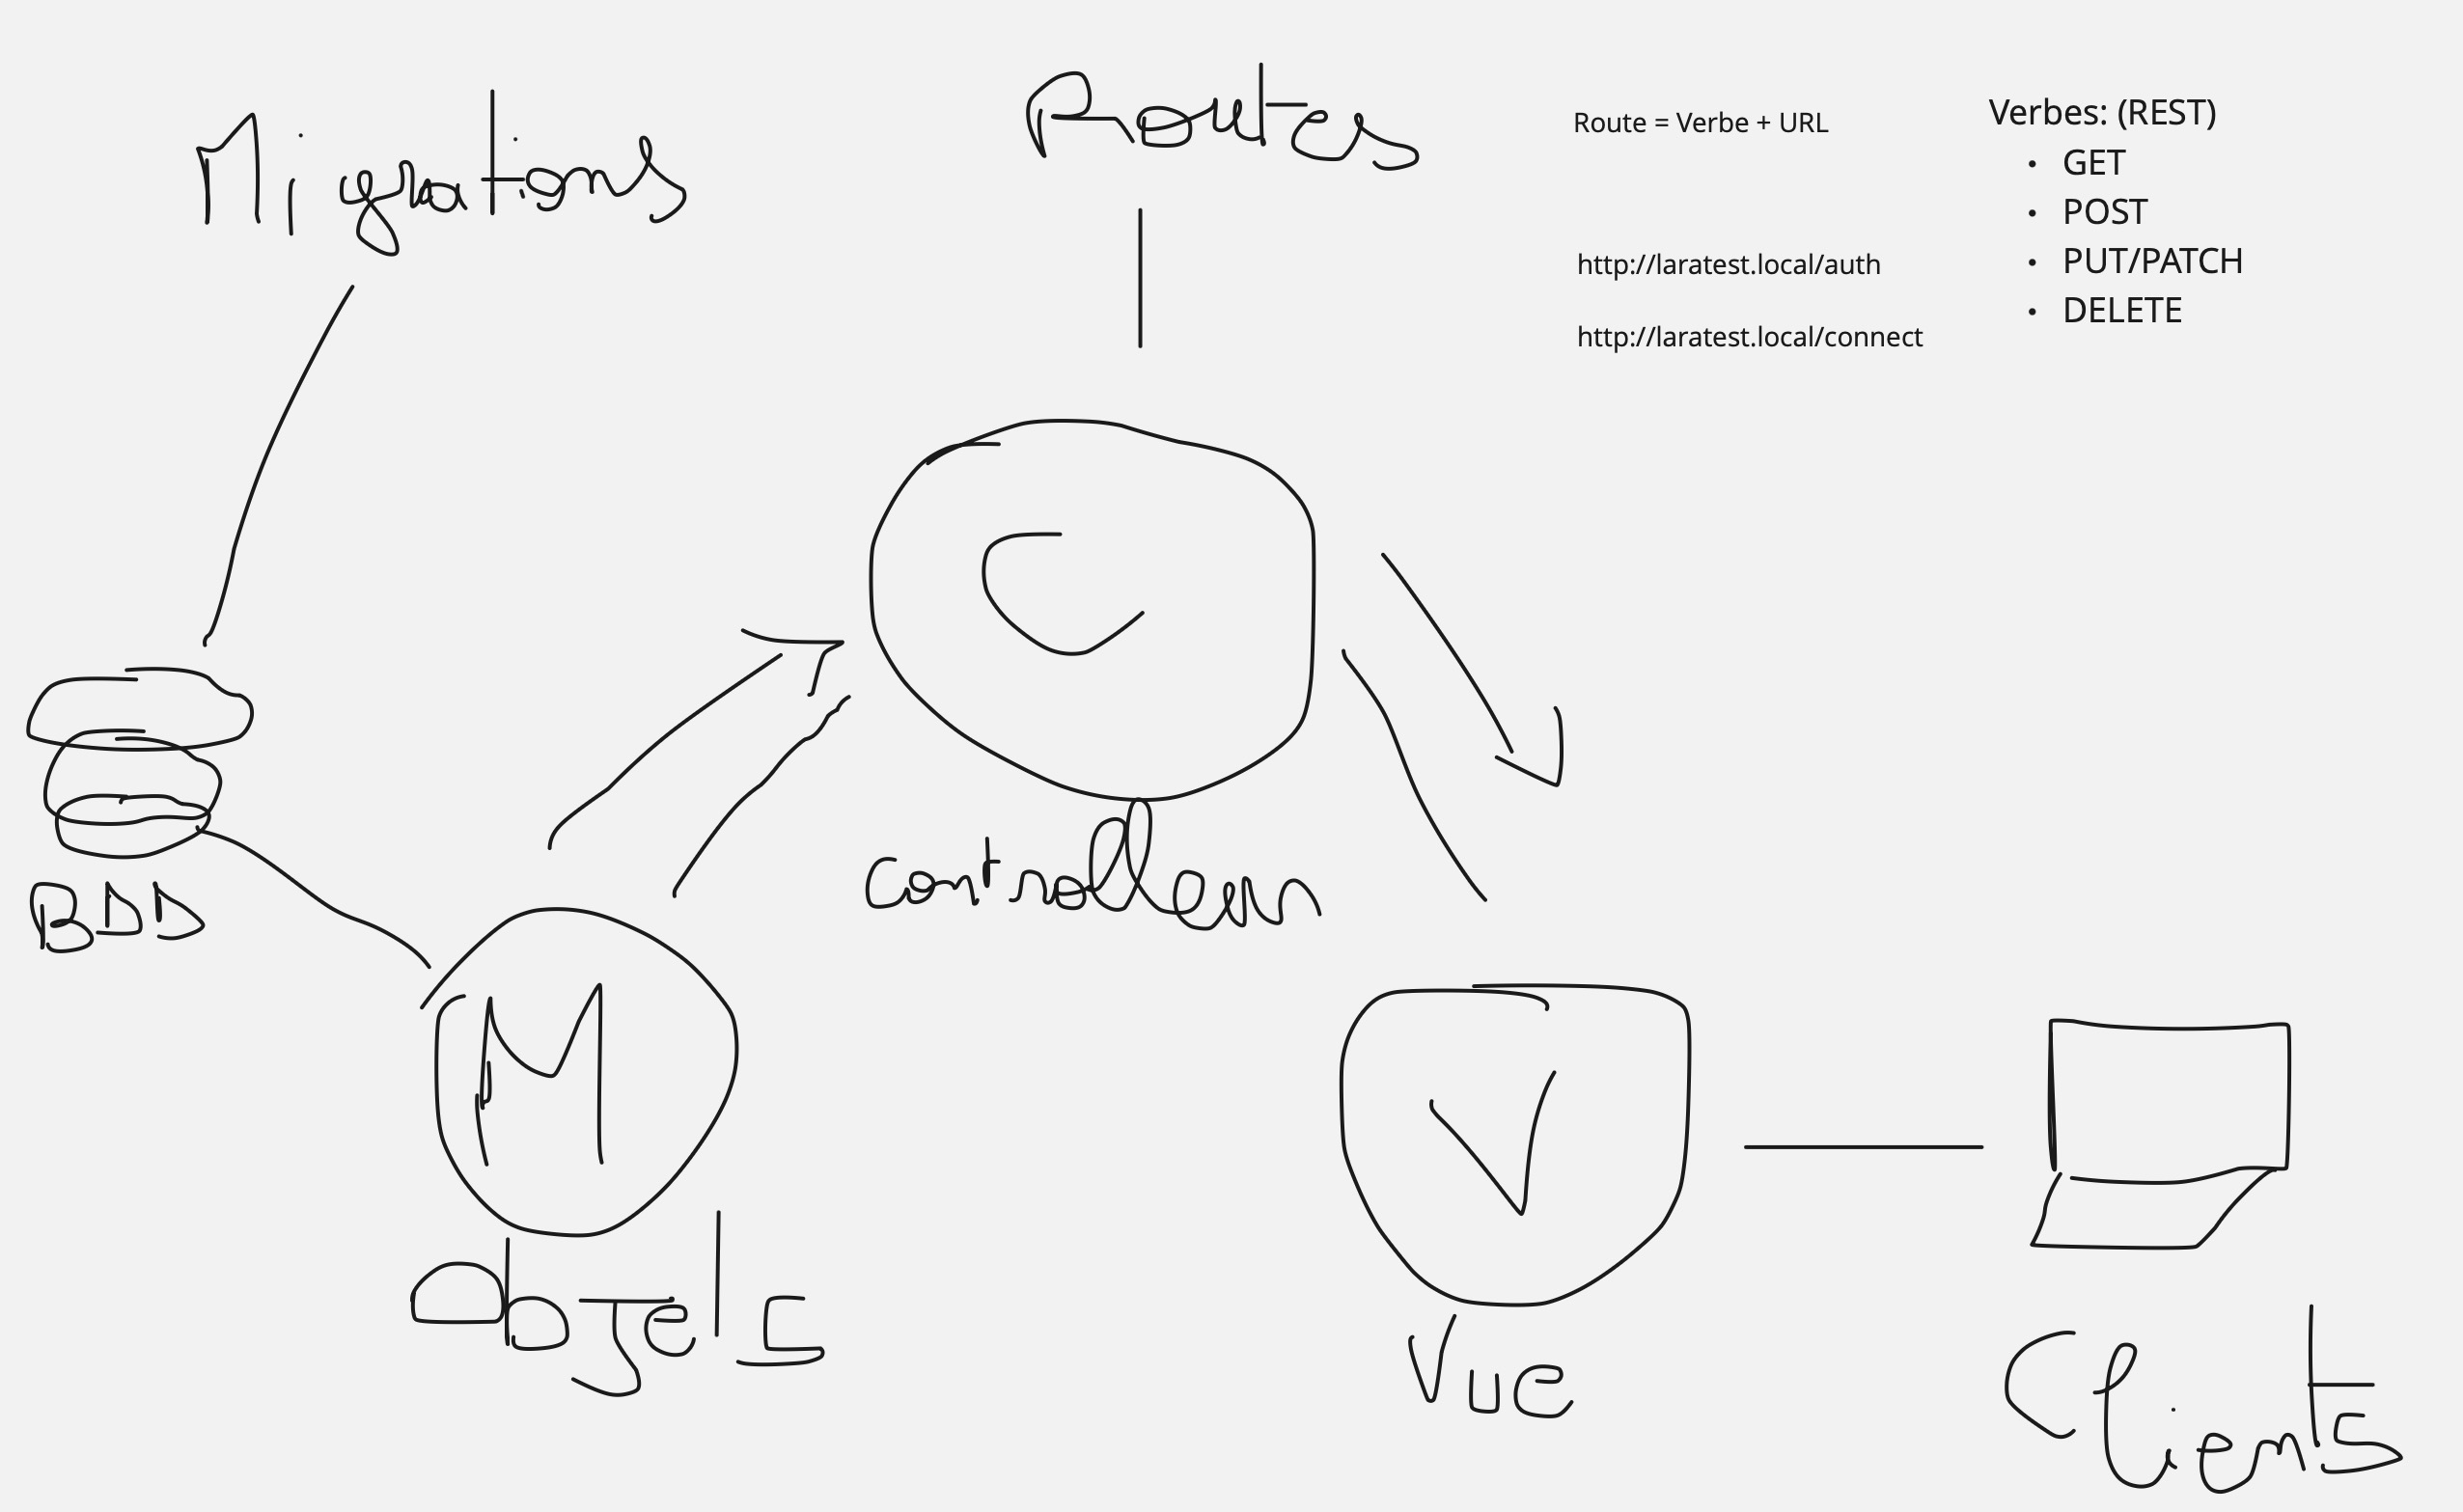 Migrations
Routes
Route = Verbe + URL
http://laratest.local/auth
http://laratest.local/connect
Verbes: (REST)
• GET
• POST
• PUT/PATCH
• DELETE
C
controlleur
BDD
M
objets
V
Vue
Clients